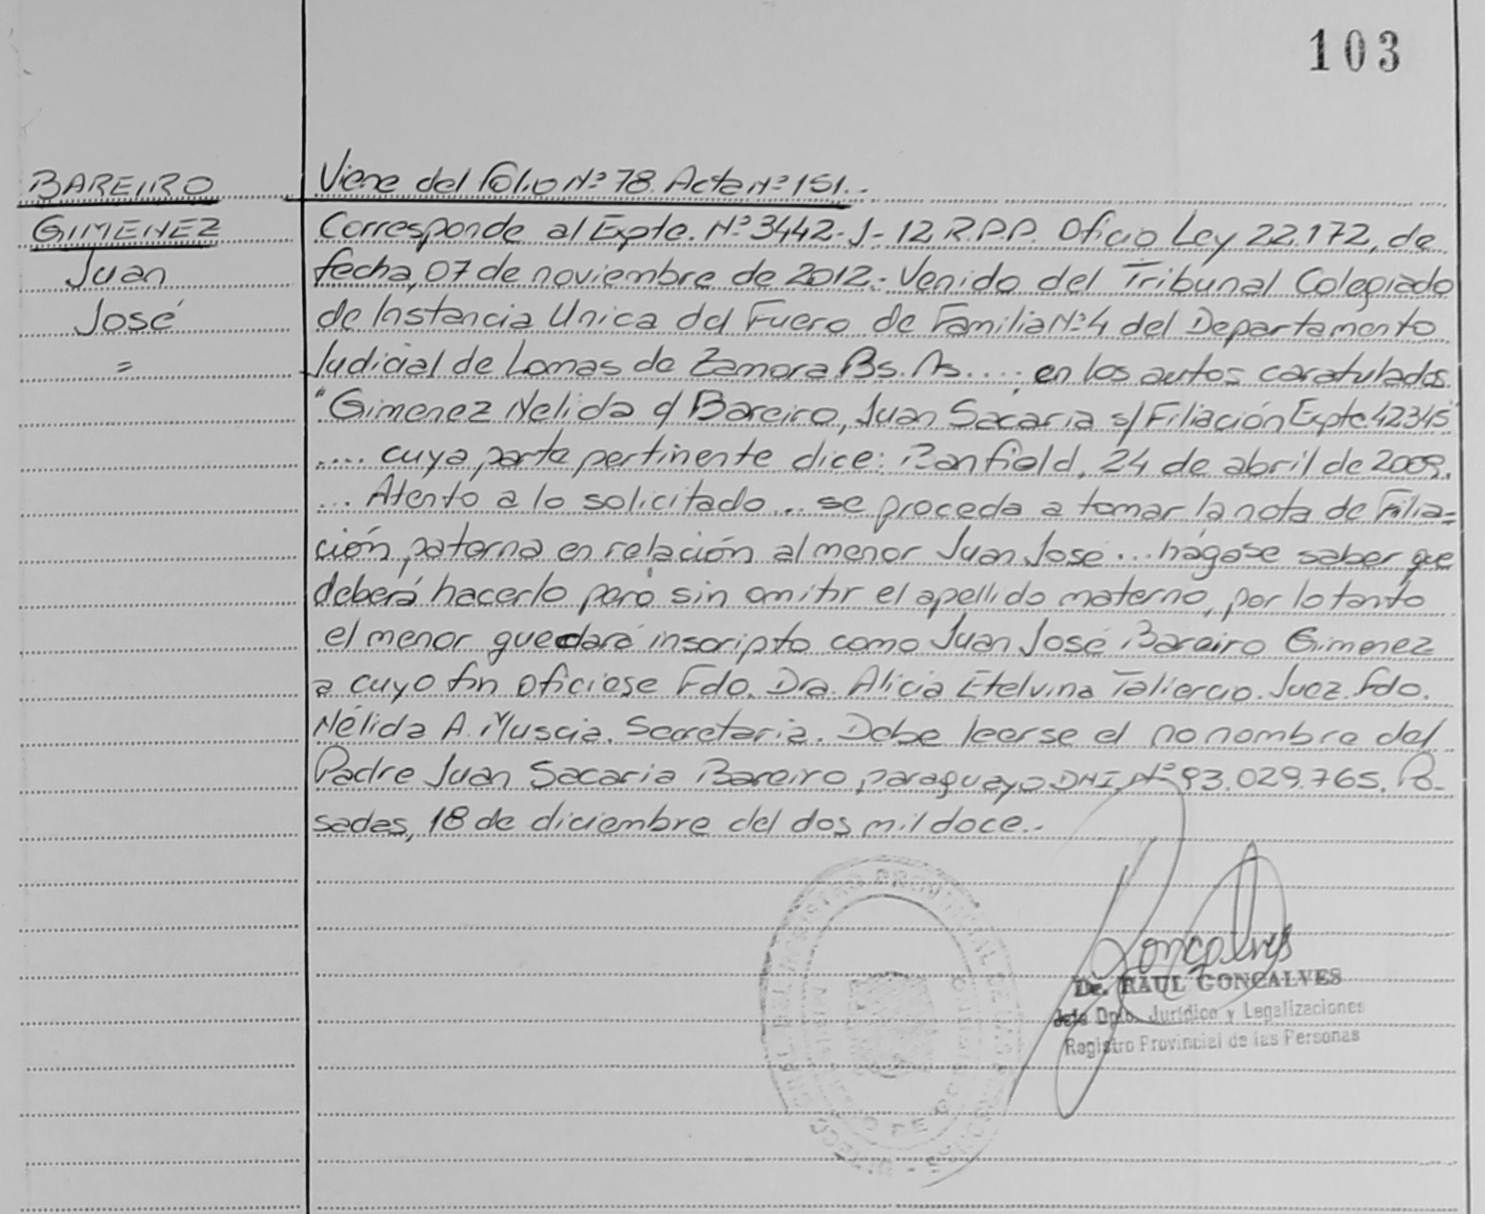 103
BAREIRO
GIMENEZ
Juan
José
=
Viene del Folio Nº 78. Acta Nº 151.-
Corresponde al Expte. Nº 3442-J-12 R.P.P. Oficio Ley 22.172, de
fecha, 07 de noviembre de 2012.- Venido del Tribunal Colegiado
de Instancia Unica del Fuero de Familia Nº 4 del Departamento
Judicial de Lomas de Zamora Bs. As. ... en los autos caratulados
"Gimenez Nelida c/ Bareiro, Juan Sacaria s/ Filiación Expte. 42345"
.... cuya parte pertinente dice: Banfield, 24 de abril de 2009.
... Atento a lo solicitado ... se proceda a tomar la nota de Filia=
ción paterna en relación al menor Juan Jose ... hágase saber que
deberá hacerlo pero sin omitir el apellido materno, por lo tanto
el menor quedará inscripto como Juan José Bareiro Gimenez
a cuyo fin oficiese Fdo. Dra. Alicia Etelvina Taliercio. Juez. Fdo.
Nélida A. Muscia. Secretaria. Debe leerse el nonombre del
Padre Juan Sacaria Bareiro, paraguayo DNI, Nº 93.029.765. Po-
sadas, 18 de diciembre del dos mil doce.-
Gonçalves
Dr. RAUL GONCALVES
Jefe Dpto. Jurídico y Legalizaciones
Registro Provincial de las Personas
REGISTRO PROVINCIAL DE LAS PERSONAS